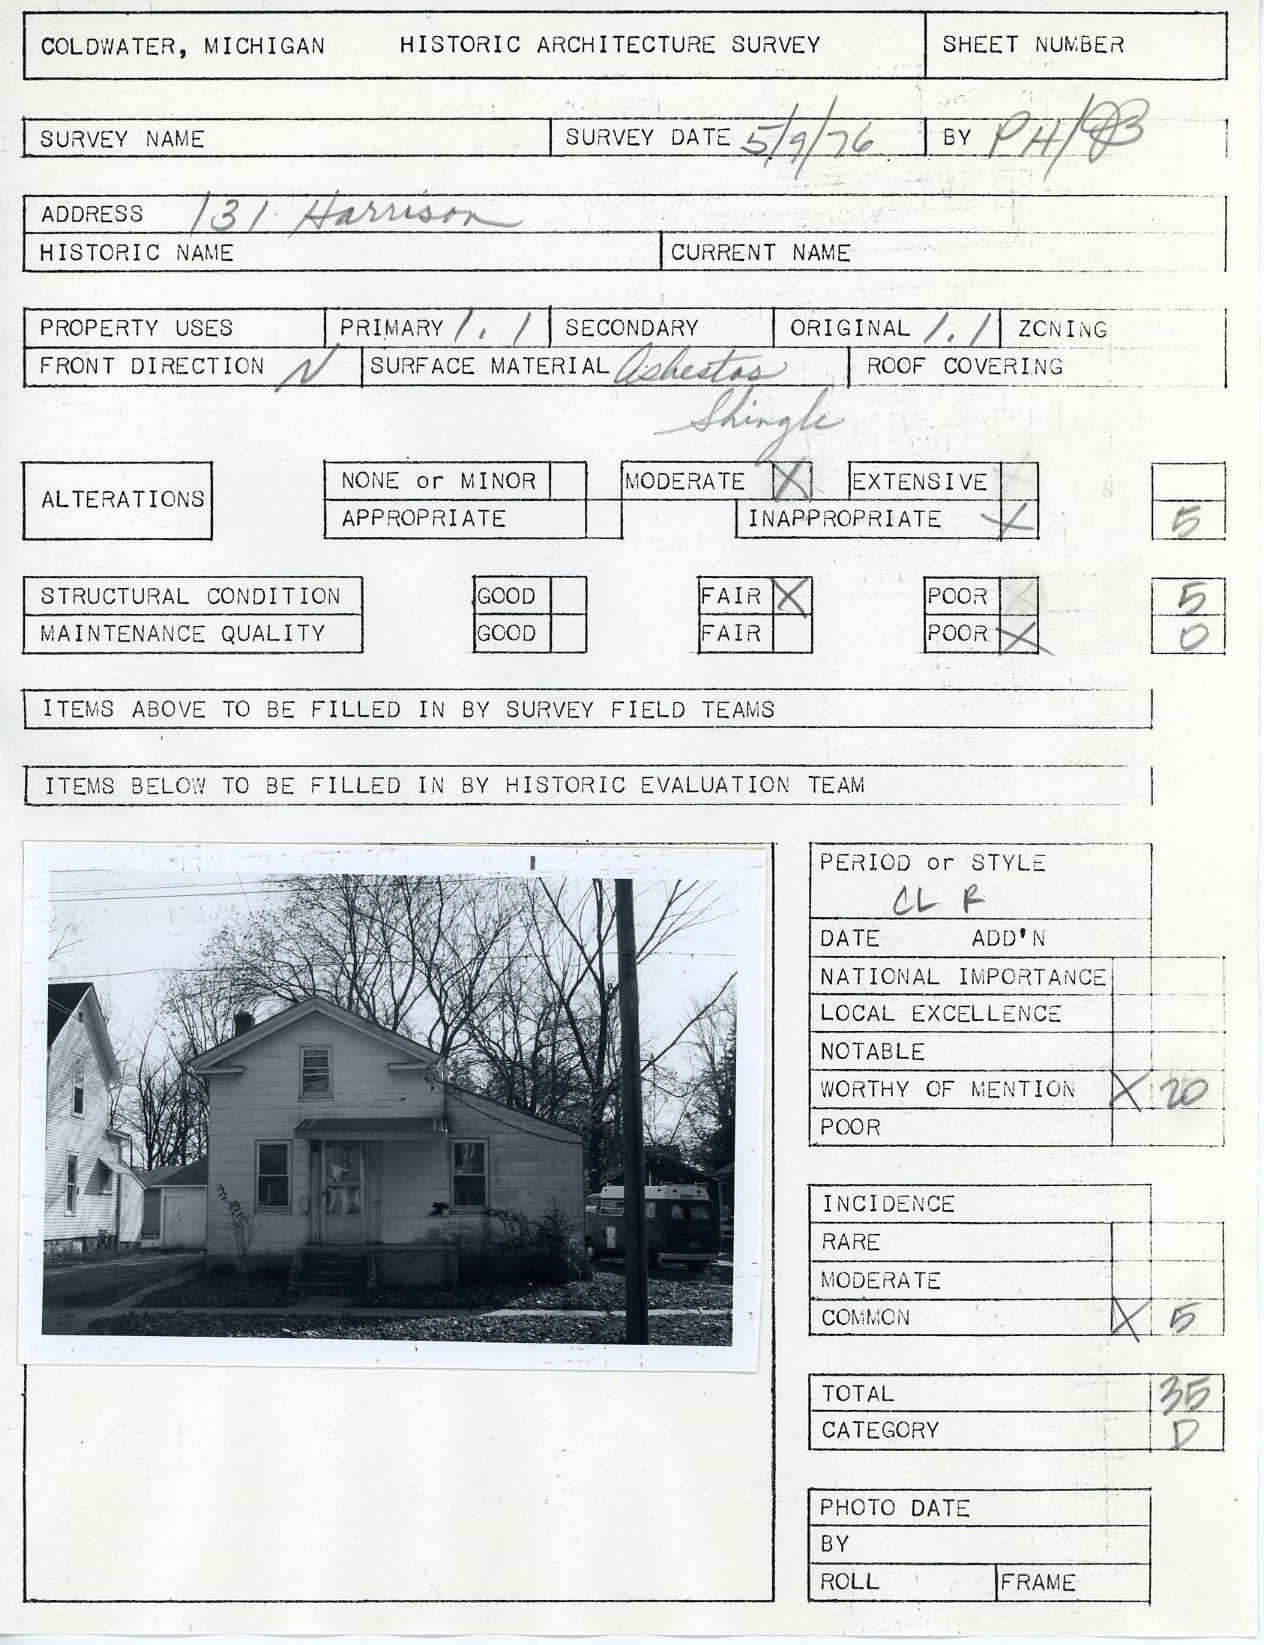 COLDWATER, MICHIGAN HISTORIC ARCHITECTURE SURVEY SHEET NUMBER
SURVEY NAME SURVEY DATE 5/9/76 BY PH/JB
ADDRESS 131 Harrison
HISTORIC NAME CURRENT NAME
PROPERTY USES PRIMARY 1.1 SECONDARY ORIGINAL 1.1 ZONING
FRONT DIRECTION N SURFACE MATERIAL Asbestos ROOF COVERING
Shingle
ALTERATIONS
NONE or MINOR MODERATE X EXTENSIVE
APPROPRIATE INAPPROPRIATE X 5
STRUCTURAL CONDITION GOOD FAIR X POOR 5
MAINTENANCE QUALITY GOOD FAIR POOR X 0
ITEMS ABOVE TO BE FILLED IN BY SURVEY FIELD TEAMS
ITEMS BELOW TO BE FILLED IN BY HISTORIC EVALUATION TEAM
PERIOD or STYLE
CL R
DATE ADD'N
NATIONAL IMPORTANCE
LOCAL EXCELLENCE
NOTABLE
WORTHY OF MENTION X 20
POOR
INCIDENCE
RARE
MODERATE
COMMON X 5
TOTAL 35
CATEGORY D
PHOTO DATE
BY
ROLL FRAME